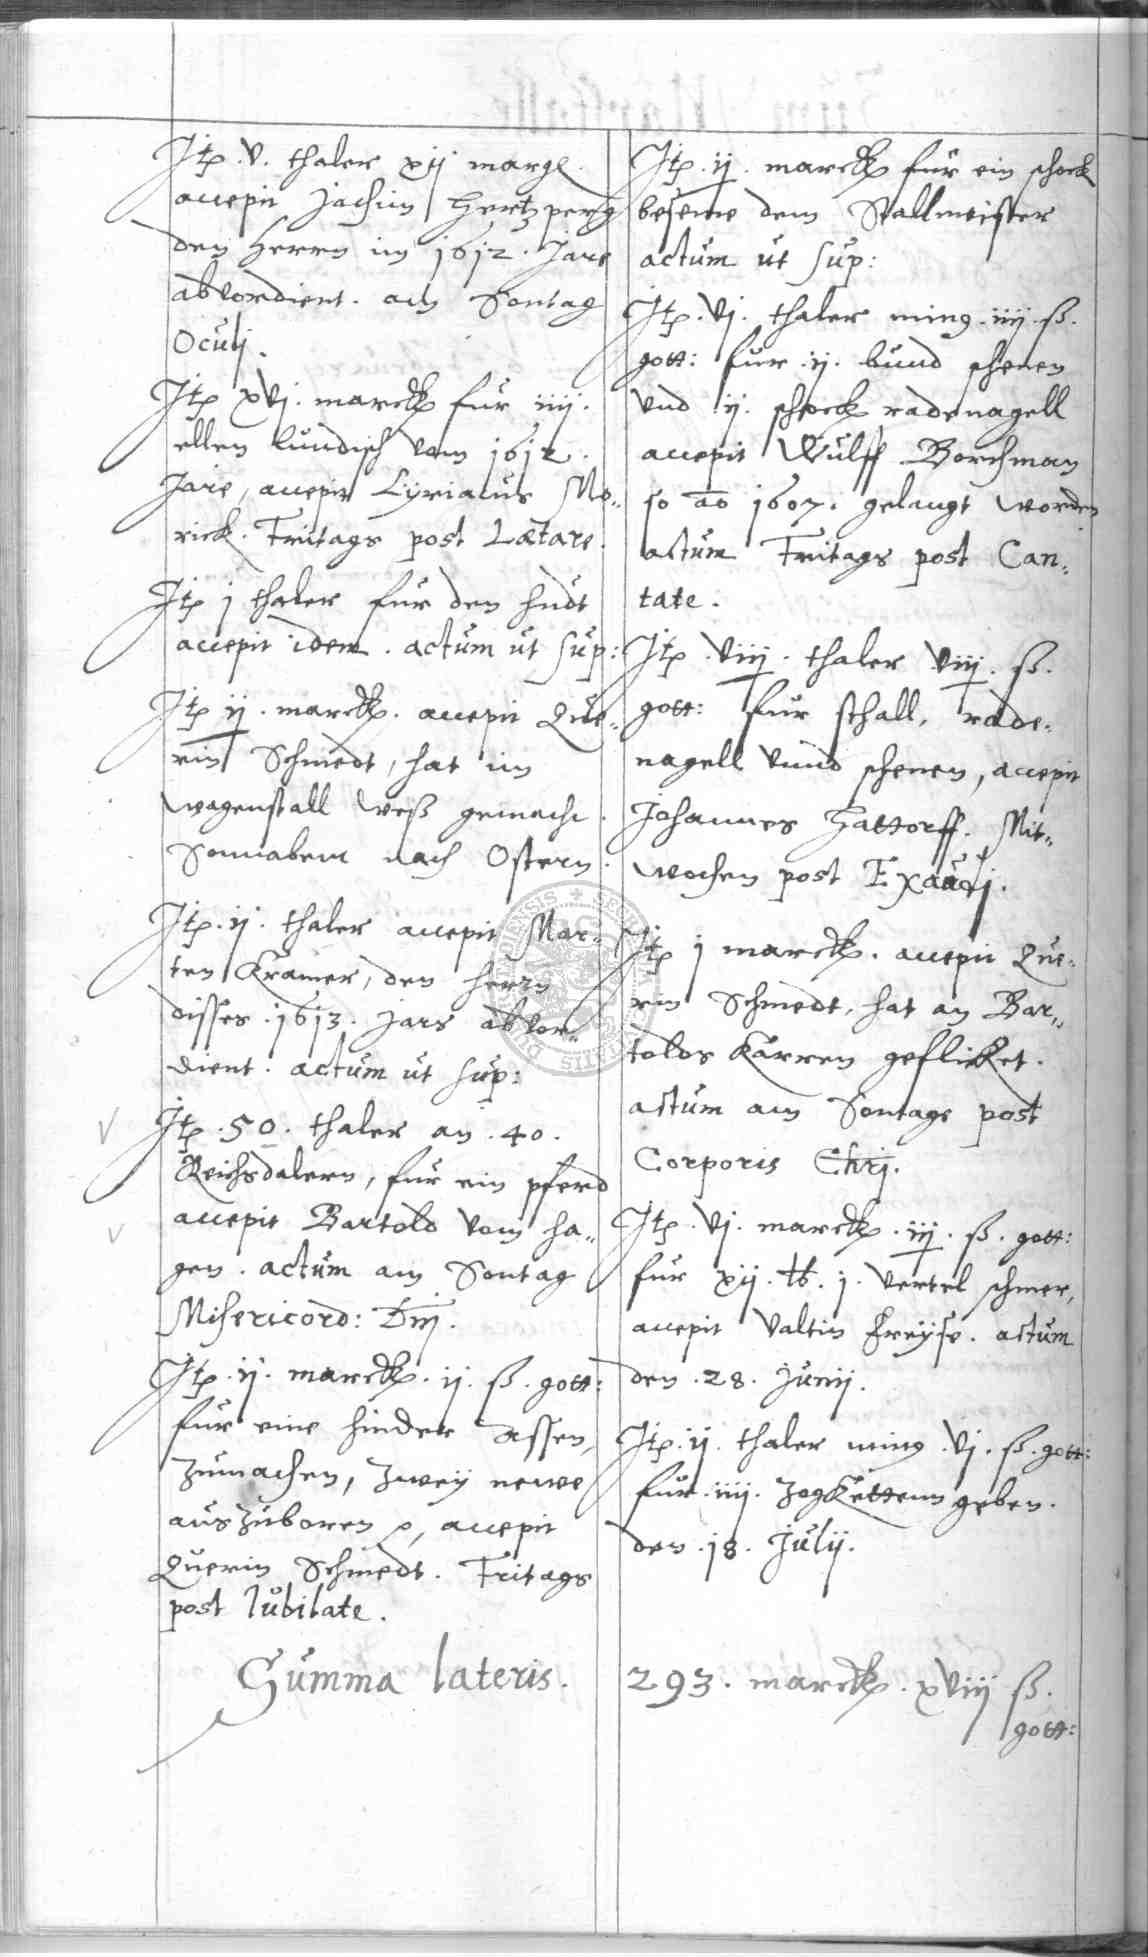 Jtp. v. thaler xij margl.
accepit Jachim Hertzperg
den Herrn im 1612. Jare
abvordient. am Sontag
Oculj.
Jtp xvj. marck fur iiij.
ellen lundisch vom 1612.
Jare, accepit Cyriacus Mo„
rick. Fritags post Lætare.
Jtp j thaler fur den hudt
accepit idem. actum ut sup:
Jtp ij. marck. accepit Que„
rin Schmedt, hat im
wagenstall weß gemacht.
Sonnabent nach Ostern.
Jtp. ij. thaler accepit Mar„
ten Kramer, den herrn
disses 1613. Jars abvor„
dient. actum ut sup:
Jtp. 50. thaler an. 40.
Reichsdalern, fur ein pferd
accepit Bartold vom ha„
gen. actum am Sontag
Misericord: Dnj.
Jtp. ij. marck. ij. ß. gott:
fur eine hinder assen,
zumachen, zweÿ newe
auszuboren, accepit
Querin Schmedt. Fritags
post Jubilate.
Jtp. ij. marck fur ein schock
beseme dem Stallmeister
actum ut sup:
Jtp. vj. thaler ming. iiij. ß.
gott: fur. ij. bund schenen
vnd ij. schock radenagell
accepit Wulff Borchman
so ao 1607. gelangt worden
actum Fritags post Can„
tate.
Jtp viij. thaler viij. ß.
gott: fur schall, rade„
nagell vnnd schenen, accepit
Johannes Hattorff. Mit„
wochen post Exaudj.
Jtp j marck. accepit Que„
rin Schmedt, hat an Bar„
tolds Karren geflicket.
actum am Sontage post
Corporis Chrj.
Jtp. vj. marck. iij. ß. gott:
fur xij. lb. j. vertel schmer,
accepit Valtin Freÿse. actum
den. 28. Junij.
Jtp. ij. thaler ming. vj. ß. gott:
fur. iiij. zogKettenn geben.
den. 18. Julij.
Summa lateris. 293. marck. xviij ß.
gott: